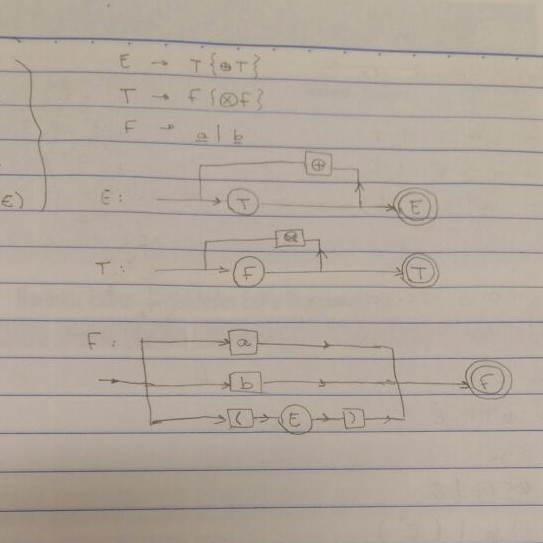 E → T{⊕T}
T → F{⊗F}
F → a | b
⊕
E: T E
€)
⊗
T: F T
F: a
b F
( E )